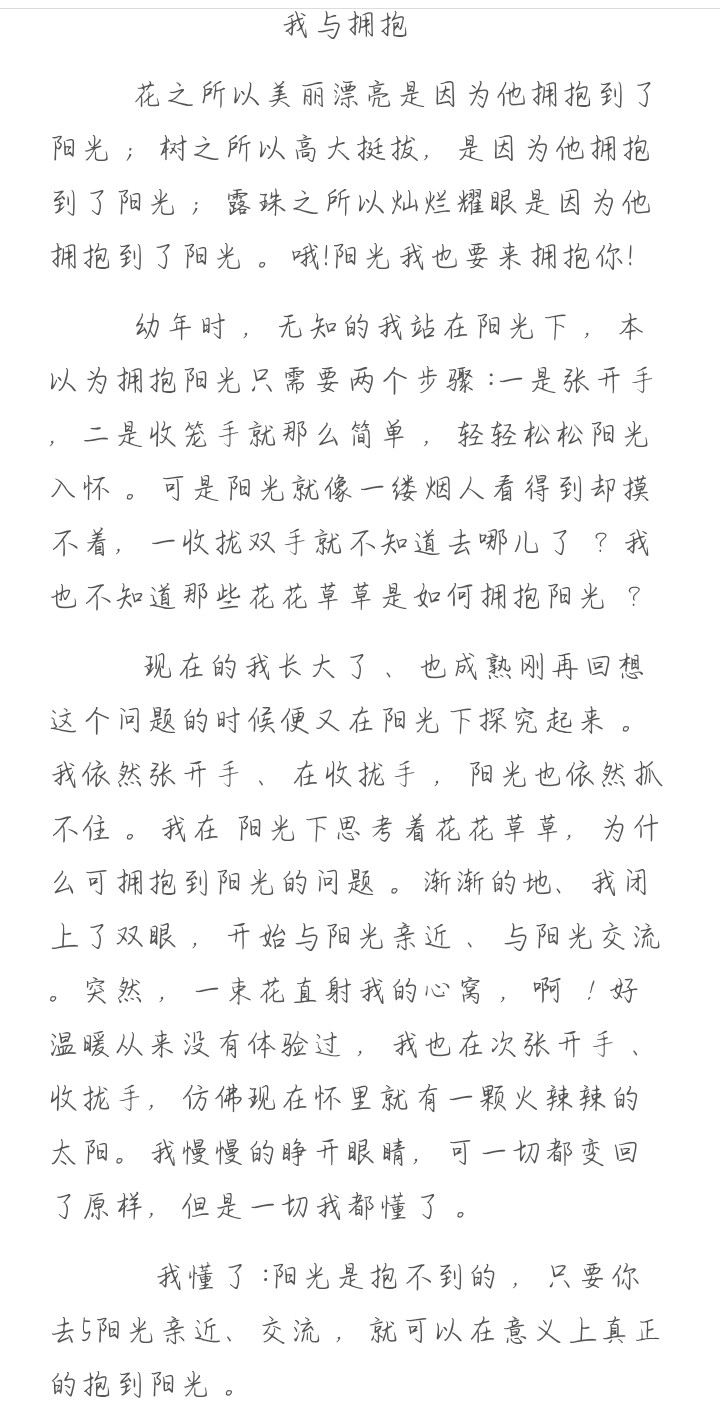 我与拥抱
花之所以美丽漂亮是因为他拥抱到了
阳光；树之所以高大挺拔，是因为他拥抱
到了阳光；露珠之所以灿烂耀眼是因为他
拥抱到了阳光。哦!阳光我也要来拥抱你!
幼年时，无知的我站在阳光下，本
以为拥抱阳光只需要两个步骤:一是张开手
，二是收笼手就那么简单，轻轻松松阳光
入怀。可是阳光就像一缕烟人看得到却摸
不着，一收拢双手就不知道去哪儿了？我
也不知道那些花花草草是如何拥抱阳光？
现在的我长大了、也成熟刚再回想
这个问题的时候便又在阳光下探究起来。
我依然张开手、在收拢手，阳光也依然抓
不住。我在 阳光下思考着花花草草，为什
么可拥抱到阳光的问题。渐渐的地、我闭
上了双眼，开始与阳光亲近、与阳光交流
。突然，一束花直射我的心窝，啊！好
温暖从来没有体验过，我也在次张开手、
收拢手，仿佛现在怀里就有一颗火辣辣的
太阳。我慢慢的睁开眼睛，可一切都变回
了原样，但是一切我都懂了。
我懂了:阳光是抱不到的，只要你
去5阳光亲近、交流，就可以在意义上真正
的抱到阳光。